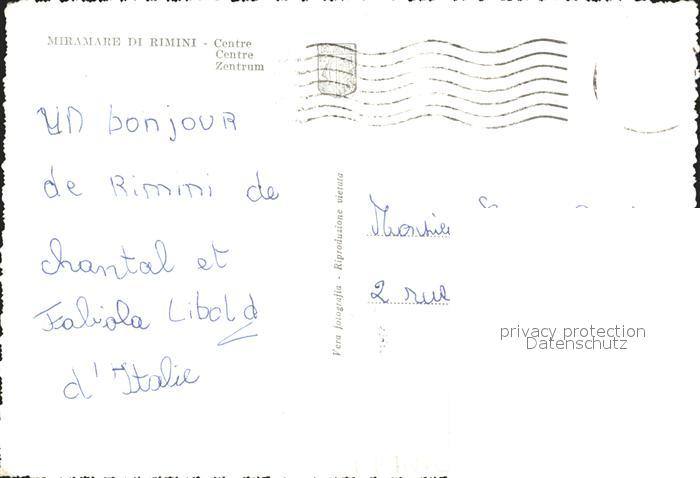 MIRAMARE DI RIMINI - Centre
Centre
Zentrum
UN bonjouR
de Rimini de
chantal et
Fabiola Libald
d'Italie
Vera fotografia - Riproduzione vietata
2 rue
privacy protection
Datenschutz